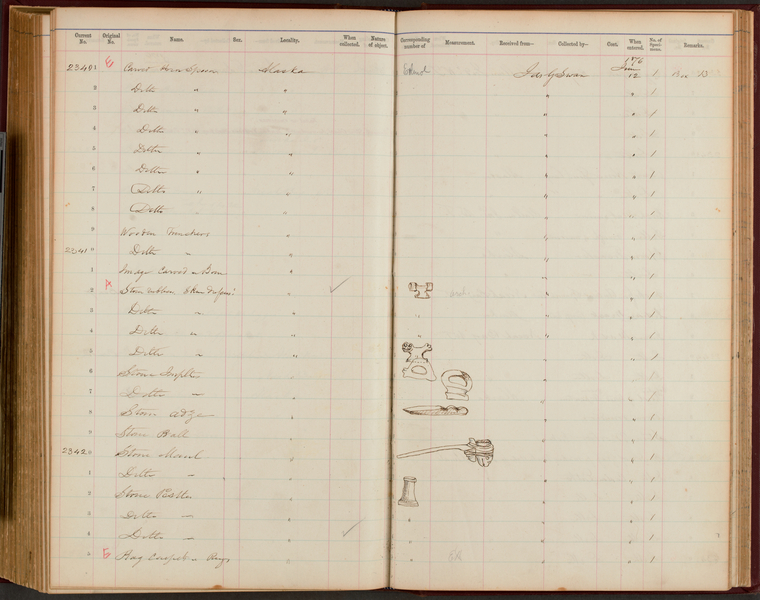 Current No. Original No. Name. Sex. Locality. When collected. Nature of object. Corresponding number of Measurement. Received from— Collected by— Cost. When entered. No. of Specimens. Remarks.
1876
23401 E Carved Horn Spoon Alaska Jas G Swan June 12 1 Box 13
2 Ditto " " " " 1
3 Ditto " " " " 1
4 Ditto " " " " 1
5 Ditto " " " " 1
6 Ditto " " " " 1
7 Ditto " " " " 1
8 Ditto " " " " 1
9 Wooden " " " 1
23410 Ditto " " " " 1
1 Image Carved Bone " " " 1
2 Stone " " " 1
3 Ditto " " " " 1
4 Ditto " " " " 1
5 Ditto " " " " 1
6 Stone Implt " " " 1
7 Ditto " " " " 1
8 Stone adze " " " 1
9 Stone Ball " " " 1
23420 Stone Maul " " " 1
1 Ditto " " " " 1
2 Stone Pestle " " " 1
3 Ditto " " " " 1
4 Ditto " " " " 1
5 E Rag Carpet Rugs " " " 1